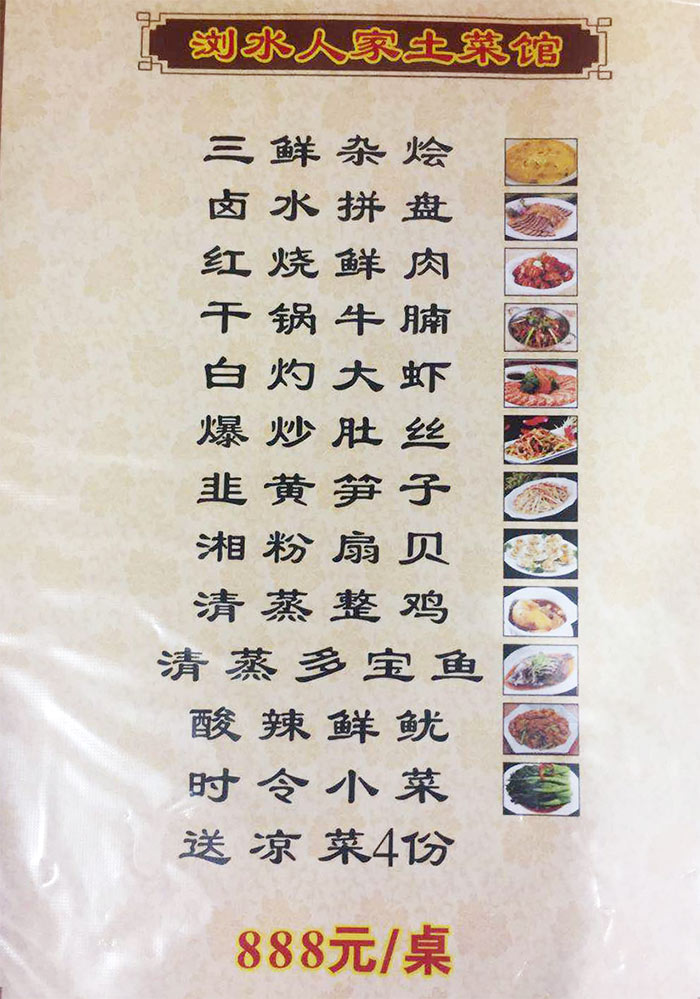 浏水人家土菜馆
三鲜杂烩
卤水拼盘
红烧鲜肉
干锅牛腩
白灼大虾
爆炒肚丝
韭黄笋子
湘粉扇贝
清蒸整鸡
清蒸多宝鱼
酸辣鲜鱿
时令小菜
送凉菜4份
888元/桌